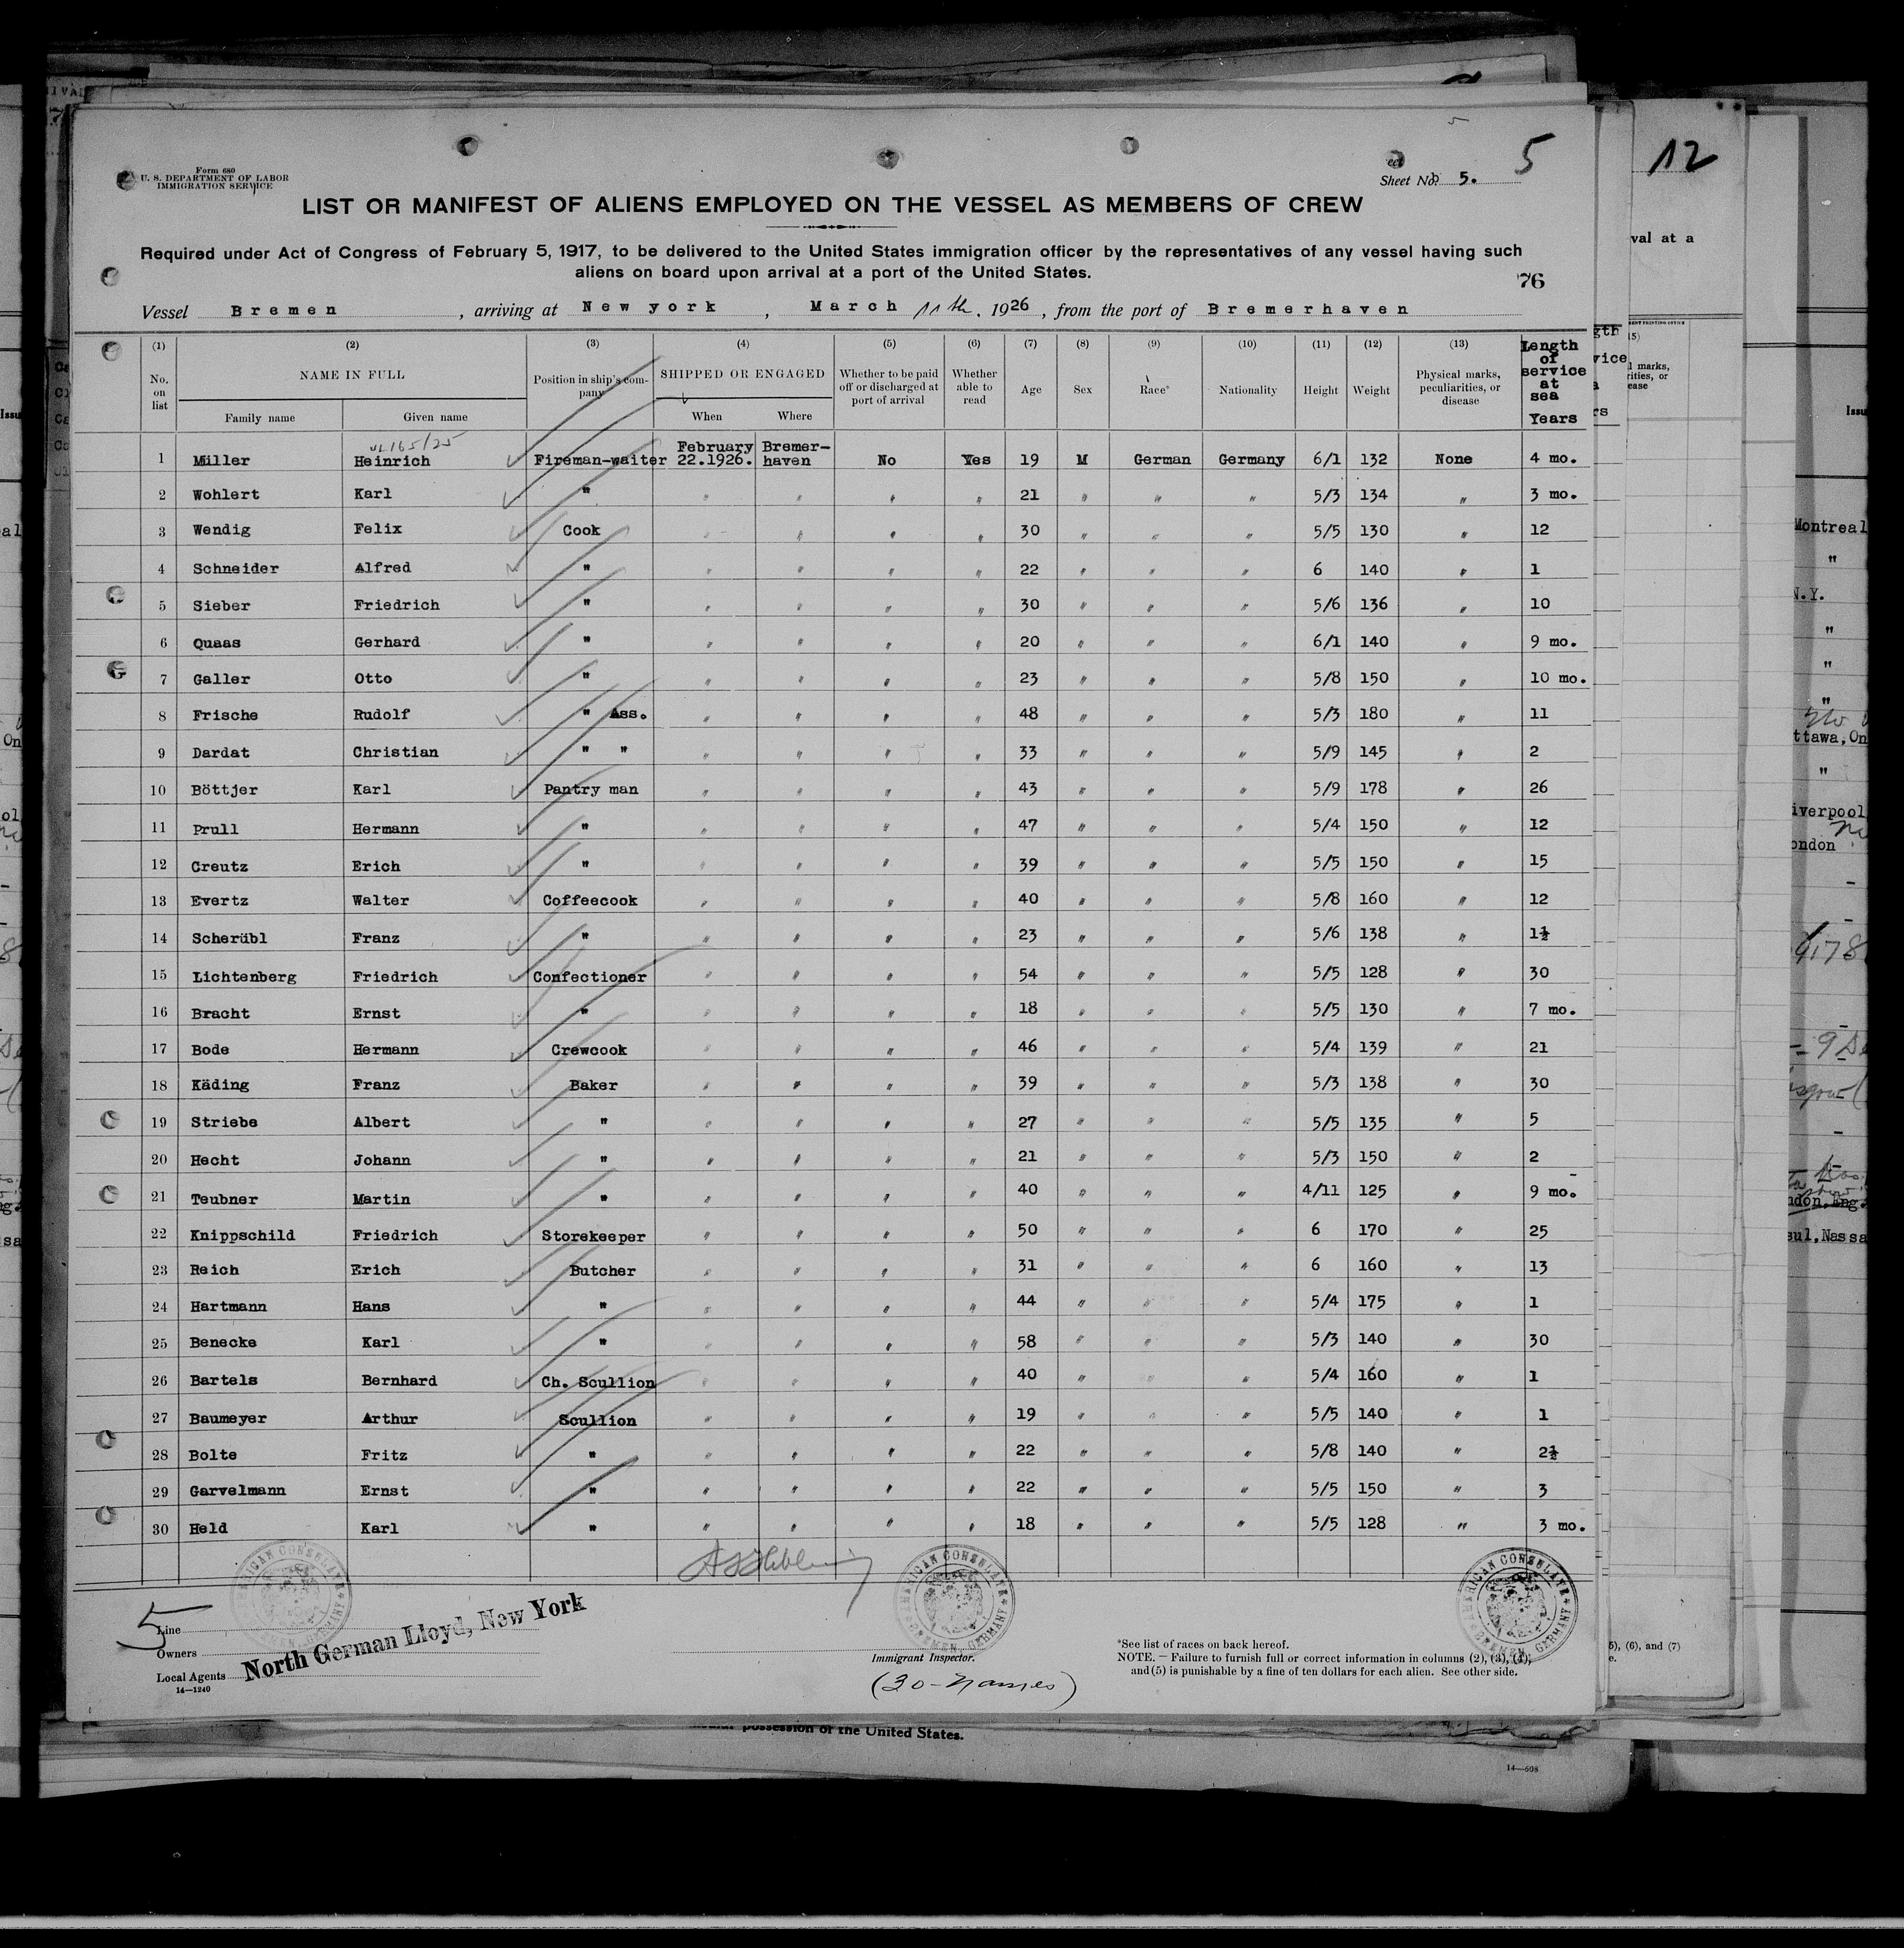 12
5
5
Form 680
U. S. DEPARTMENT OF LABOR
IMMIGRATION SERVICE
Sheet No. 5.
LIST OR MANIFEST OF ALIENS EMPLOYED ON THE VESSEL AS MEMBERS OF CREW
Required under Act of Congress of February 5, 1917, to be delivered to the United States immigration officer by the representatives of any vessel having such
aliens on board upon arrival at a port of the United States.
76
Vessel Bremen, arriving at New york, March 11th, 1926, from the port of Bremerhaven
(1) (2) (3) (4) (5) (6) (7) (8) (9) (10) (11) (12) (13)
No. on list NAME IN FULL Family name Given name Position in ship's company SHIPPED OR ENGAGED When Where Whether to be paid off or discharged at port of arrival Whether able to read Age Sex Race* Nationality Height Weight Physical marks, peculiarities, or disease Length of service at sea Years
1 Müller Heinrich Fireman-waiter February 22.1926. Bremer-haven No Yes 19 M German Germany 6/1 132 None 4 mo.
2 Wohlert Karl " " " " " 21 " " " 5/3 134 " 3 mo.
3 Wendig Felix Cook " " " " 30 " " " 5/5 130 " 12
4 Schneider Alfred " " " " " 22 " " " 6 140 " 1
5 Sieber Friedrich " " " " " 30 " " " 5/6 136 " 10
6 Quaas Gerhard " " " " " 20 " " " 6/1 140 " 9 mo.
7 Galler Otto " " " " " 23 " " " 5/8 150 " 10 mo.
8 Frische Rudolf " Ass. " " " " 48 " " " 5/3 180 " 11
9 Dardat Christian " " " " " " 33 " " " 5/9 145 " 2
10 Böttjer Karl Pantry man " " " " 43 " " " 5/9 178 " 26
11 Prull Hermann " " " " " 47 " " " 5/4 150 " 12
12 Creutz Erich " " " " " 39 " " " 5/5 150 " 15
13 Evertz Walter Coffeecook " " " " 40 " " " 5/8 160 " 12
14 Scherübl Franz " " " " " 23 " " " 5/6 138 " 1½
15 Lichtenberg Friedrich Confectioner " " " " 54 " " " 5/5 128 " 30
16 Bracht Ernst " " " " " 18 " " " 5/5 130 " 7 mo.
17 Bode Hermann Crewcook " " " " 46 " " " 5/4 139 " 21
18 Käding Franz Baker " " " " 39 " " " 5/3 138 " 30
19 Striebe Albert " " " " " 27 " " " 5/5 135 " 5
20 Hecht Johann " " " " " 21 " " " 5/3 150 " 2
21 Teubner Martin " " " " " 40 " " " 4/11 125 " 9 mo.
22 Knippschild Friedrich Storekeeper " " " " 50 " " " 6 170 " 25
23 Reich Erich Butcher " " " " 31 " " " 6 160 " 13
24 Hartmann Hans " " " " " 44 " " " 5/4 175 " 1
25 Benecke Karl " " " " " 58 " " " 5/3 140 " 30
26 Bartels Bernhard Ch. Scullion " " " " 40 " " " 5/4 160 " 1
27 Baumeyer Arthur Scullion " " " " 19 " " " 5/5 140 " 1
28 Bolte Fritz " " " " " 22 " " " 5/8 140 " 2½
29 Garvelmann Ernst " " " " " 22 " " " 5/5 150 " 3
30 Held Karl " " " " " 18 " " " 5/5 128 " 3 mo.
AMERICAN CONSULATE BREMEN, GERMANY
AMERICAN CONSULATE BREMEN, GERMANY
AMERICAN CONSULATE BREMEN, GERMANY
5
Line
Owners
Local Agents
North German Lloyd, New York
14—1240
Immigrant Inspector.
(30 - Names)
*See list of races on back hereof.
NOTE. — Failure to furnish full or correct information in columns (2), (3), (4),
and (5) is punishable by a fine of ten dollars for each alien. See other side.
possession of the United States.
14—608
val at a
marks,
Montreal
"
N.Y.
"
"
"
ttawa, On
"
iverpool
ondon
ndon, Eng.
sul, Nassa
5), (6), and (7)